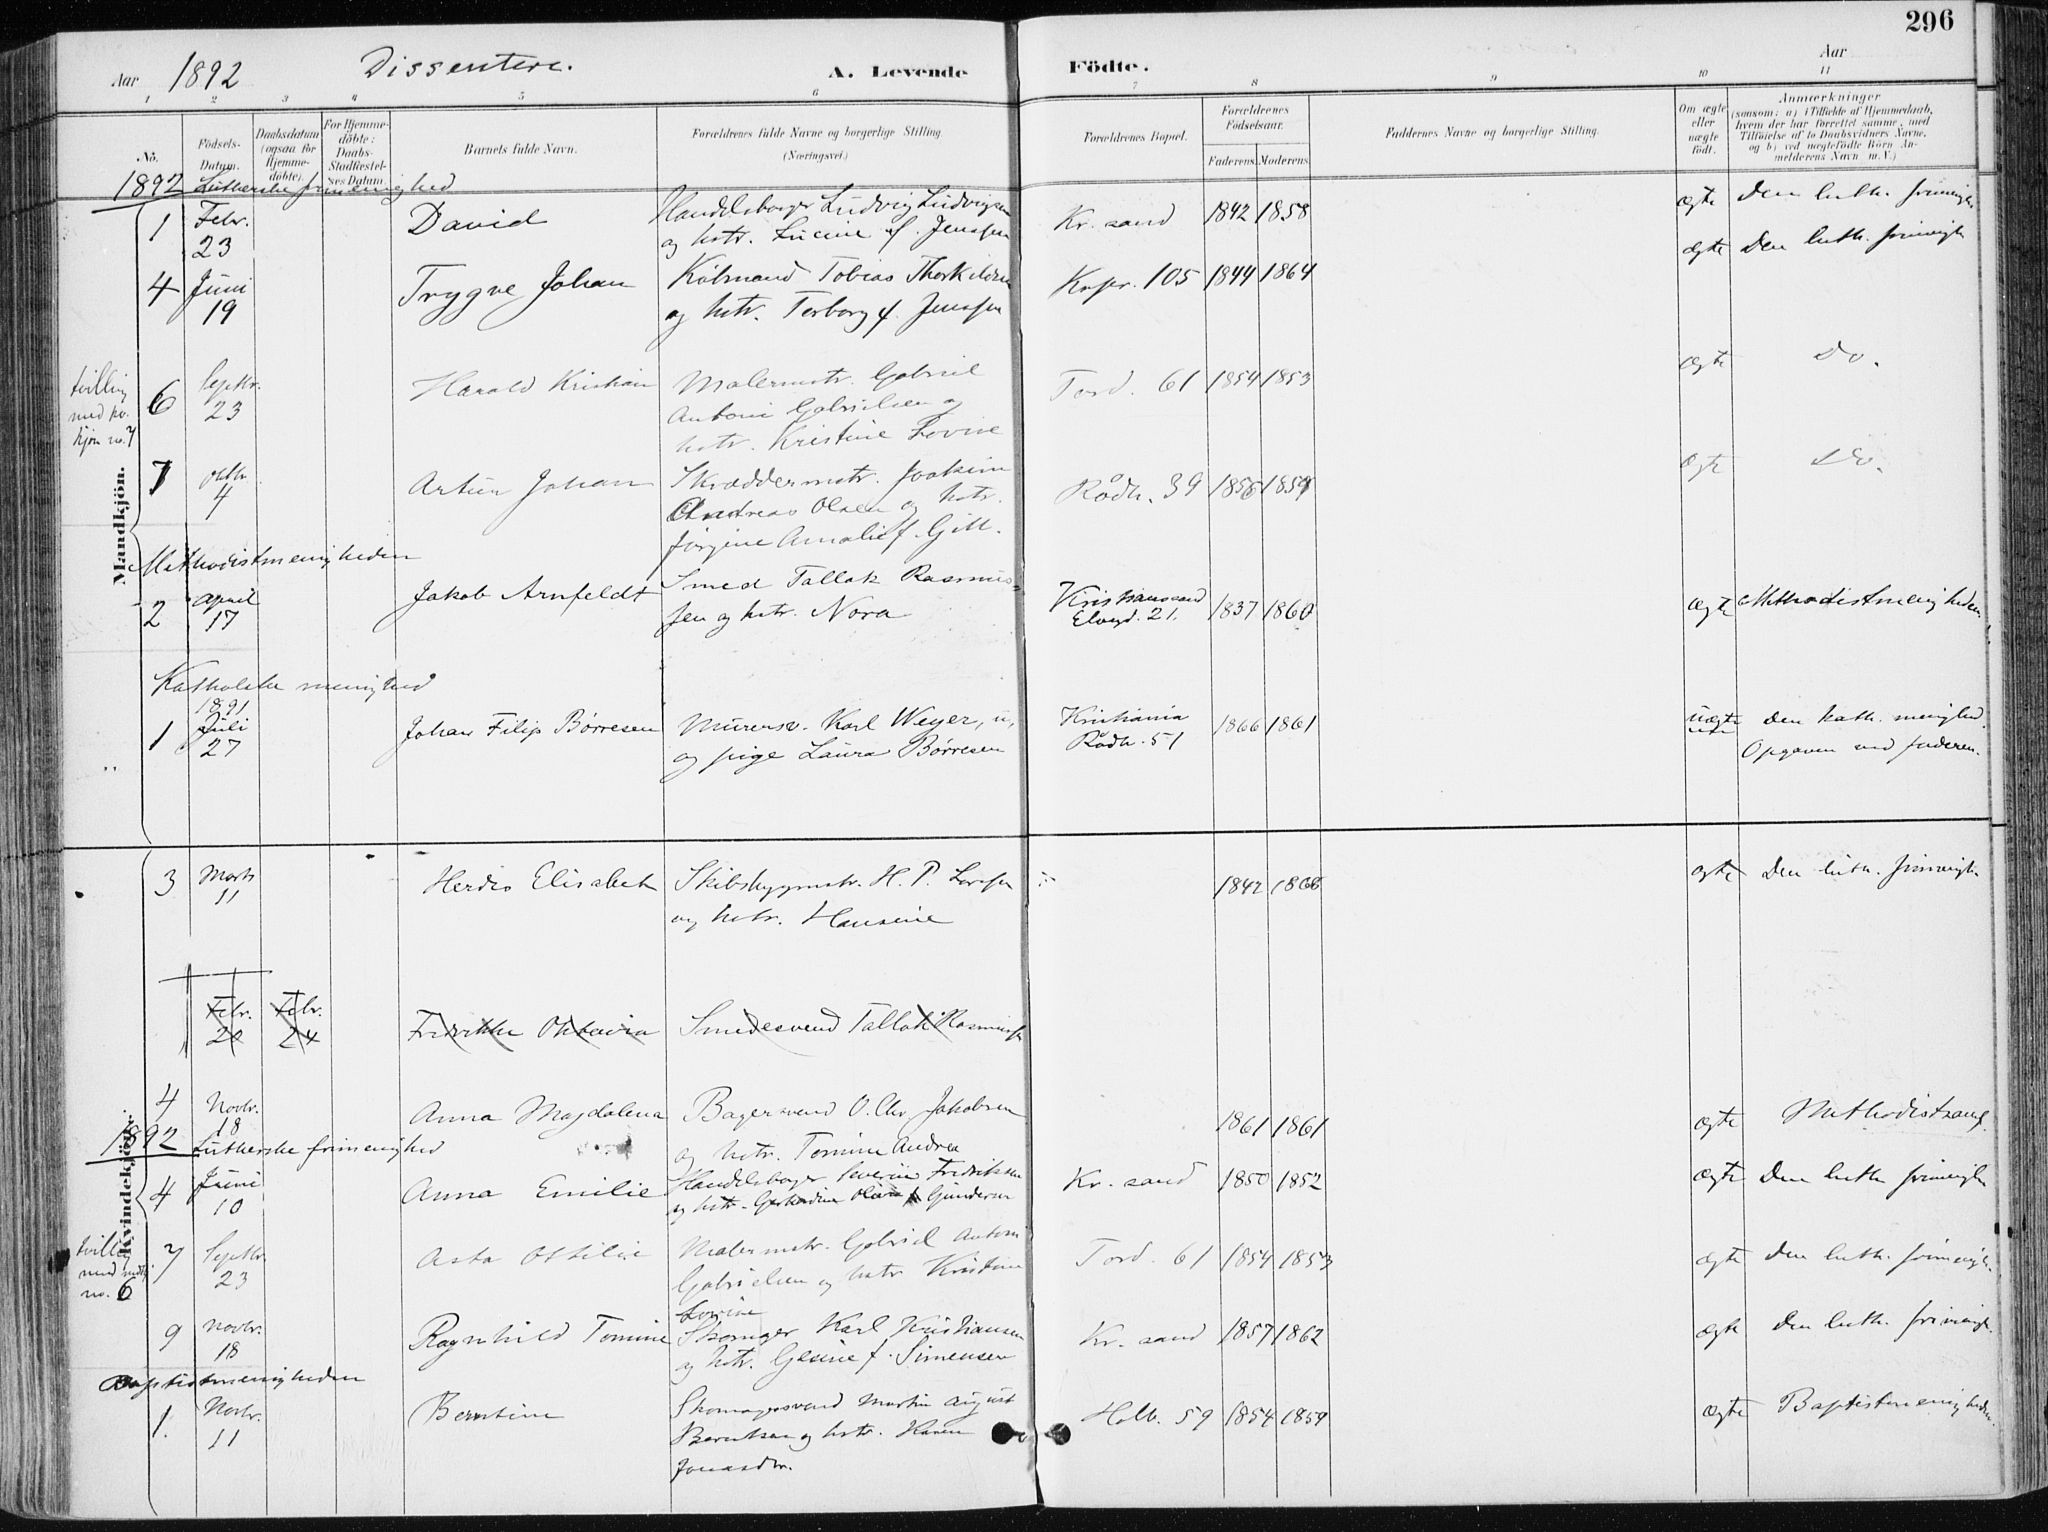 296
Aar 1892 Dissentere. A. Levende Fødte. Aar
1 2 3 4 5 6 7 8 9 10 11
No. Fødsels-Datum. Daabsdatum (ogsaa for Hjemmedøbte). For Hjemmedøbte: Daabs-Stadfæstelses Datum. Barnets fulde Navn. Forældrenes fulde Navne og borgerlige Stilling. (Næringsvei.) Forældrenes Bopæl. Forældrenes Fødselsaar. Faderens. Moderens. Faddernes Navne og borgerlige Stilling. Om ægte eller uægte født. Anmærkninger (saasom: a) i Tilfælde af Hjemmedaab, hvem der har forrettet samme, med Tilføielse af to Daabsvidners Navne, og b) ved uægtefødte Børn Anmelderens Navn m. V.)
Mandkjön.
1892 Lutherske frimenighed
1 Febr. 23 David Handelsborger Ludvig Ludvigsen Kr. sand 1842 1858 ægte Den luth. frimenigh.
og hstr. Lucine f. Jenssen
4 Juni 19 Trygve Johan Kjøbmand Tobias Thorkildsen Kvpr. 105 1844 1864 ægte Den luth. frimenigh
og hstr. Torborg f. Jenssen
tvilling med kv. kjøn no. 7
6 Septbr. 23 Harald Kristian Malermstr. Gabriel Tord. 61 1854 1853 ægte Do.
Antoni Gabrielsen og
hstr. Kristine Lovise
7 Oktbr. 4 Artur Johan Skræddermstr. Joakim Rådh. 39 1856 1859 ægte Do.
Andreas Olsen og hstr.
Jørgine Amalie f. Gill.
Methodistmenigheden
2 April 17 Jakob Arnfeldt Smed Tallak Rasmus= Kristianssand Elvegd. 21. 1837 1860 ægte Methodistmenigheden.
sen og hstr. Nora
Katholske menighed
1 1891 Juli 27 Johan Filip Børresen Murersv. Karl Weyer, u, Kristiania Rådh. 51 1866 1861 uægte Den kath. menighed
og pige Laura Børresen Opgaven ved faderen.
Kvindekjön.
3 Marts 11 Herdis Elisabet Skibsbygmstr. H. P. 1842 1866 ægte Den luth. frimenigh.
og hstr. Hansine
Febr. 20 Febr. 24 Fredrikke Oktavia Smedesvend Tallak Rasmussen
4 Novbr. 18 Anna Magdalena Bagersvend O. Chr. Jakobsen 1861 1861 ægte Methodistsamf.
og hstr. Tomine Andrea
1892 Lutherske frimenighed
4 Juni 10 Anna Emilie Handelsborger Severin Fredriksen Kr. sand 1850 1852 ægte Den luth frimenigh
og hstr. Olava f Gundersen
tvilling
no. 6
7 Septbr. 23 Asta Ottilie Malermstr. Gabriel Antoni Tord. 61 1854 1853 ægte Den luth. frimenigh.
Gabrielsen og hstr Kristine
Lovise
9 Novbr. 18 Ragnhild Tomine Skomager Karl Kristiansen Kr. sand 1857 1862 ægte Den luth. frimenigh.
og hstr. Gesine f. Simensen
Baptistmenigheden
1. Novbr. 11 Berntine Skomagersvend Martin August Holb. 59 1854 1859 ægte Baptistmenigheden.
Berntsen og hstr. Haren
Jonasdtr.